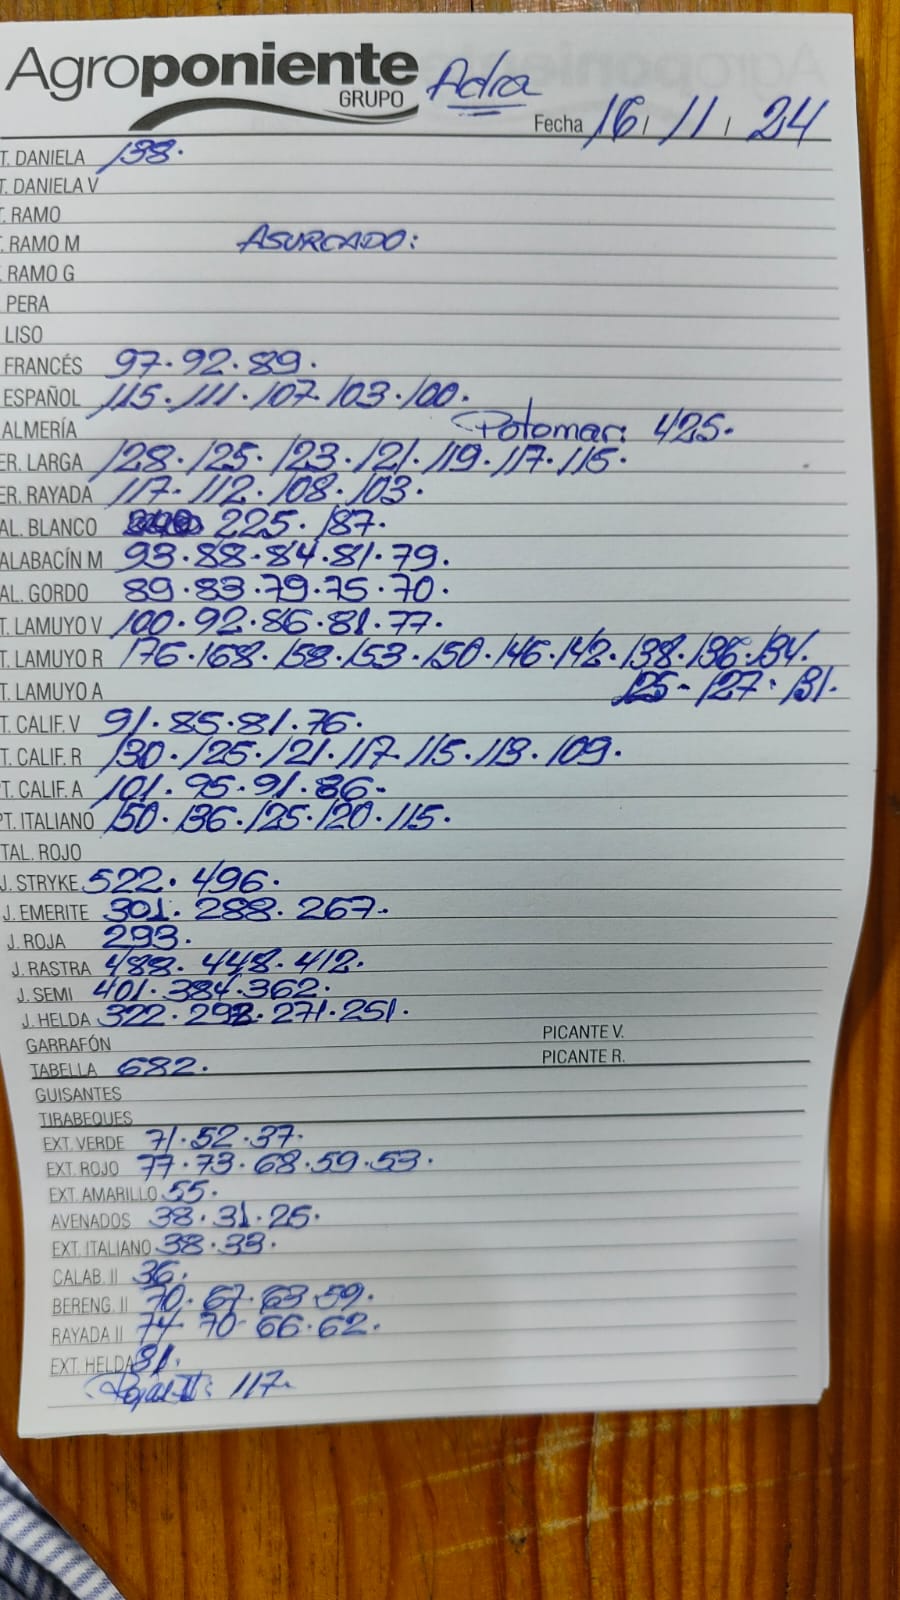 Agroponiente
GRUPO
Adra
Fecha 16 / 11 / 24
T. DANIELA 138.
T. DANIELA V
T. RAMO
T. RAMO M ASURCADO:
RAMO G
PERA
LISO
FRANCÉS 97. 92. 89.
ESPAÑOL 115. 111. 107. 103. 100.
ALMERÍA Potomar: 425.
ER. LARGA 128. 125. 123. 121. 119. 117. 115.
ER. RAYADA 117. 112. 108. 103.
AL. BLANCO 225. 187.
ALABACÍN M 93. 88. 84. 81. 79.
AL. GORDO 89. 83. 79. 75. 70.
T. LAMUYO V 100. 92. 86. 81. 77.
T. LAMUYO R 176. 168. 158. 153. 150. 146. 142. 138. 136. 134.
T. LAMUYO A 125- 127. 131.
T. CALIF. V 91. 85. 81. 76.
T. CALIF. R 130. 125. 121. 117. 115. 113. 109.
PT. CALIF. A 101. 95. 91. 86-
PT. ITALIANO 150. 136. 125. 120. 115.
TAL. ROJO
J. STRYKE 522. 496.
J. EMERITE 301. 288. 267.
J. ROJA 293.
J. RASTRA 488. 448. 412.
J. SEMI 401. 384. 362.
J. HELDA 322. 292. 271. 251.
GARRAFÓN PICANTE V.
TABELLA 682. PICANTE R.
GUISANTES
TIRABEQUES
EXT. VERDE 71. 52. 37.
EXT. ROJO 77. 73. 68. 59. 53.
EXT. AMARILLO 55.
AVENADOS 38. 31. 25.
EXT. ITALIANO 38. 33.
CALAB. II 36.
BERENG. II 70. 67. 63. 59.
RAYADA II 74. 70- 66. 62.
EXT. HELDA 81.
II: 117.